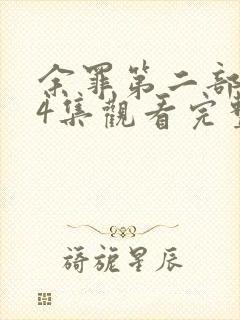 余罪第二部
4集觀看完整
旖旎星辰